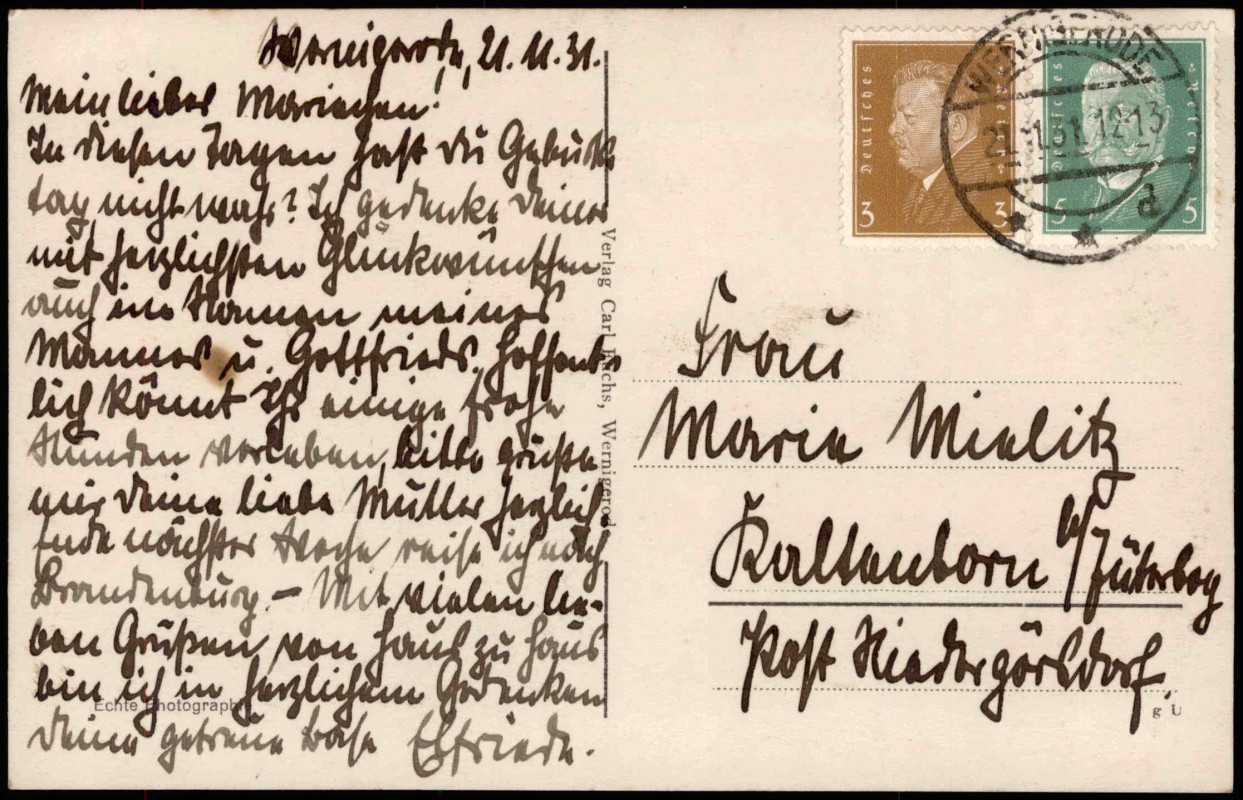 Wernigerode, 21.11.31.
Mein liebes Mariechen!
In diesen Tagen hast du Geburts-
tag nicht wahr? Ich gedenke Deiner
mit herzlichsten Glückwünschen
auch im Namen meines
Mannes u. Gottfrieds. Hoffent-
lich könnt Ihr einige frohe
Stunden verleben, bitte grüße
mir Deine liebe Mutter herzlich.
Ende nächster Woche reise ich nach
Brandenburg. – Mit vielen lie-
ben Grüßen von Haus zu Haus
bin ich in herzlichem Gedenken
Deine getreue Base Elfriede.
Echte Photographie
Verlag Carl Fuchs, Wernigerode
Deutsches Reich
3 3
Deutsches Reich
5 5
WERNIGERODE
21.11.31.12-13
d
Frau
Marie Mielitz
Kaltenborn b/Jüterbog
Post Niedergörsdorf.
g U